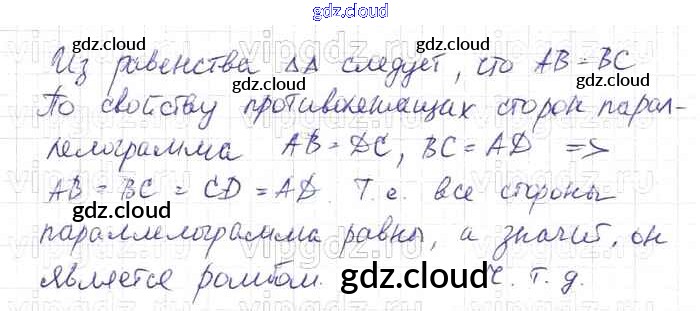 gdz.cloud
Из равенства ΔΔ следует, что AB = BC
По свойству противолежащих сторон парал-
лелограмма AB = DC, BC = AD =>
AB = BC = CD = AD. Т.е. все стороны
параллелограмма равны, а значит, он
является ромбом. Ч. т. д.
gdz.cloud
gdz.cloud
gdz.cloud
gdz.cloud
gdz.cloud
gdz.cloud
gdz.cloud
gdz.cloud